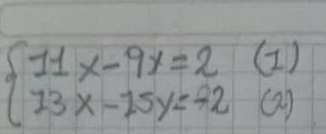 11x-9y=2 (1)
13x-15y=-2 (2)